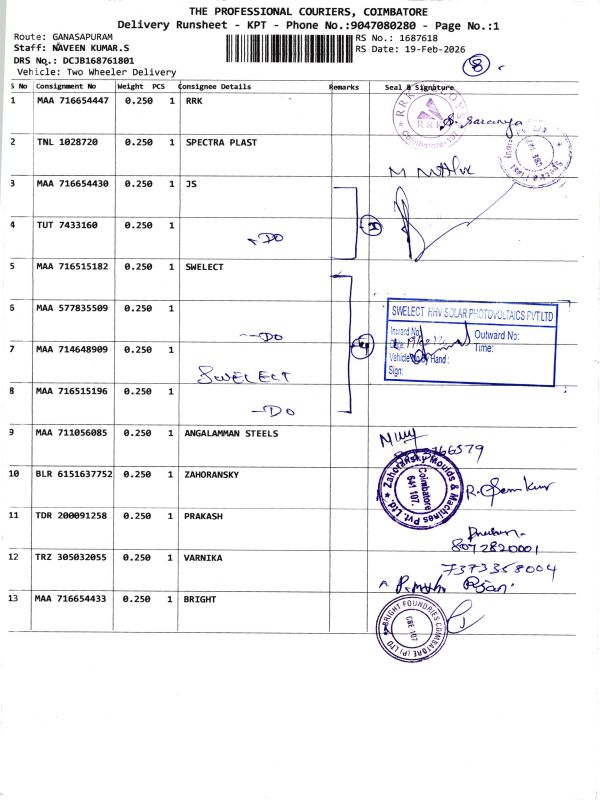 THE PROFESSIONAL COURIERS, COIMBATORE
Delivery Runsheet - KPT - Phone No.:9047080280 - Page No.:1
Route: GANASAPURAM
RS No.: 1687618
Staff: NAVEEN KUMAR.S
RS Date: 19-Feb-2026
DRS No.: DCJB168761801
8
Vehicle: Two Wheeler Delivery
S No Consignment No Weight PCS Consignee Details Remarks Seal & Signature
1 MAA 716654447 0.250 1 RRK
S. Saranya
2 TNL 1028720 0.250 1 SPECTRA PLAST
3 MAA 716654430 0.250 1 JS
4 TUT 7433160 0.250 1
-DO
5 MAA 716515182 0.250 1 SWELECT
6 MAA 577835509 0.250 1
-DO
SWELECT HHV SOLAR PHOTOVOLTAICS PVT.LTD
Inward No:
Outward No:
Date:
Time:
Vehicle No/by Hand :
Sign:
7 MAA 714648909 0.250 1
SWELECT
8 MAA 716515196 0.250 1
-DO
9 MAA 711056085 0.250 1 ANGALAMMAN STEELS
10 BLR 6151637752 0.250 1 ZAHORANSKY
Zahoransky Moulds & Machines Pvt. Ltd.
Coimbatore
641 107.
11 TDR 200091258 0.250 1 PRAKASH
8072820001
12 TRZ 305032055 0.250 1 VARNIKA
7373358004
13 MAA 716654433 0.250 1 BRIGHT
BRIGHT FOUNDRIES COIMBATORE (P) LTD
CBE-107